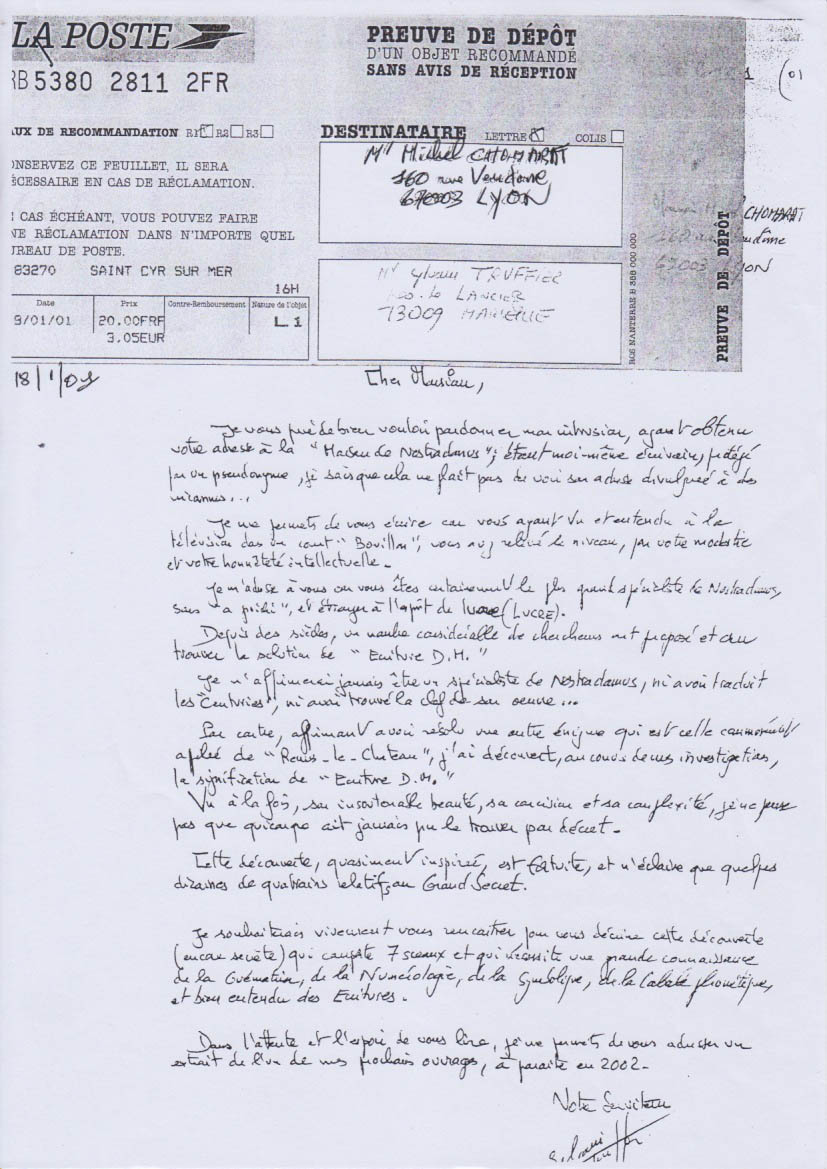 LA POSTE
RB 5380 2811 2FR
PREUVE DE DÉPÔT
D'UN OBJET RECOMMANDÉ
SANS AVIS DE RÉCEPTION
UX DE RECOMMANDATION R1 R2 R3
DESTINATAIRE LETTRE COLIS
ONSERVEZ CE FEUILLET, IL SERA
ÉCESSAIRE EN CAS DE RÉCLAMATION.
CAS ÉCHÉANT, VOUS POUVEZ FAIRE
NE RÉCLAMATION DANS N'IMPORTE QUEL
UREAU DE POSTE.
83270 SAINT CYR SUR MER
16H
Date Prix Contre-Remboursement Nature de l'objet
9/01/01 20.00FRF L 1
3.05EUR
Mr Michel CHOMARAT
160 rue Vendôme
69003 LYON
Mr Sylvain TRUFFIER
LANCIER
13009 MARSEILLE
RCS NANTERRE B 356 000 000
PREUVE DE DÉPÔT
CHOMARAT
Vendôme
69003 Lyon
18/1/01
Cher Monsieur,
Je vous prie de bien vouloir pardonner mon intrusion, ayant obtenu
votre adresse à la "Maison de Nostradamus"; étant moi-même écrivain, protégé
par un pseudonyme, je sais que cela ne plait pas de voir son adresse divulguée à des
inconnus...
Je me permets de vous écrire car vous ayant vu et entendu à la
télévision dans un court "Bouillon", vous avez relevé le niveau, par votre modestie
et votre honnêteté intellectuelle.
Je m'adresse à vous car vous êtes certainement le plus grand spécialiste de Nostradamus,
sans "a priori", et étranger à l'esprit de lucre (LUCRE).
Depuis des siècles, un nombre considérable de chercheurs ont proposé et cru
trouver la solution de "Ecriture D.M."
Je n'affirmerai jamais être un spécialiste de Nostradamus, ni avoir traduit
les "Centuries", ni avoir trouvé la clef de son oeuvre...
Par contre, affirmant avoir résolu une autre énigme qui est celle communément
appelée de "Rennes-le-Chateau", j'ai découvert, au cours de mes investigations,
la signification de "Ecriture D.M."
Vu à la fois, son insoutenable beauté, sa concision et sa complexité, je ne pense
pas que quiconque ait jamais pu le trouver par décret.
Cette découverte, quasiment inspirée, est fortuite, et n'éclaire que quelques
dizaines de quatrains relatifs au Grand Secret.
Je souhaiterais vivement vous rencontrer pour vous décrire cette découverte
(encore secrète) qui compte 7 sceaux et qui nécessite une grande connaissance
de la Guématria, de la Numérologie, de la Symbolique, de la Cabale phonétique,
et bien entendu des Ecritures.
Dans l'attente et l'espoir de vous lire, je me permets de vous adresser un
extrait de l'un de mes prochains ouvrages, à paraître en 2002.
Votre Serviteur